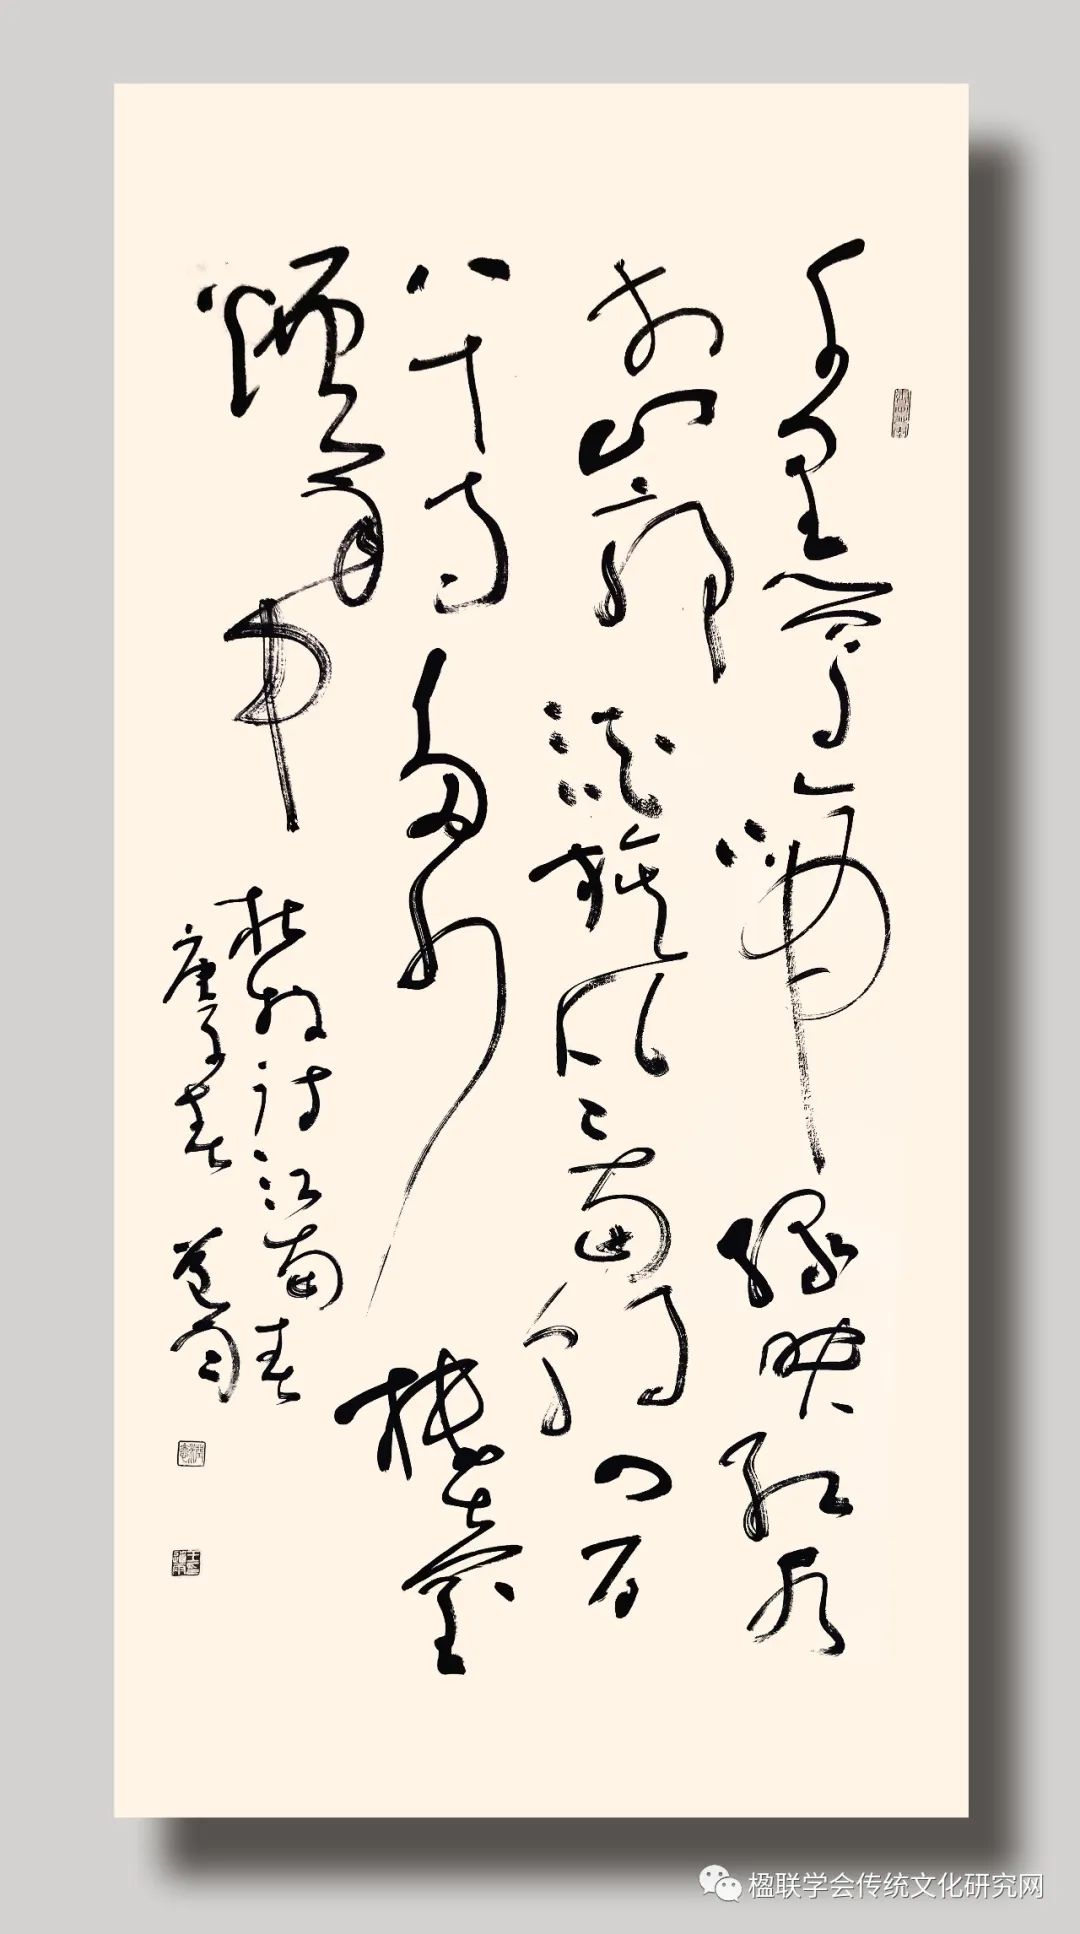 千里鶯啼綠映紅水
村山郭酒旗風南朝四百
八十寺多少樓臺
煙雨中
杜牧詩江南春
庚子春
楹联学会传统文化研究网